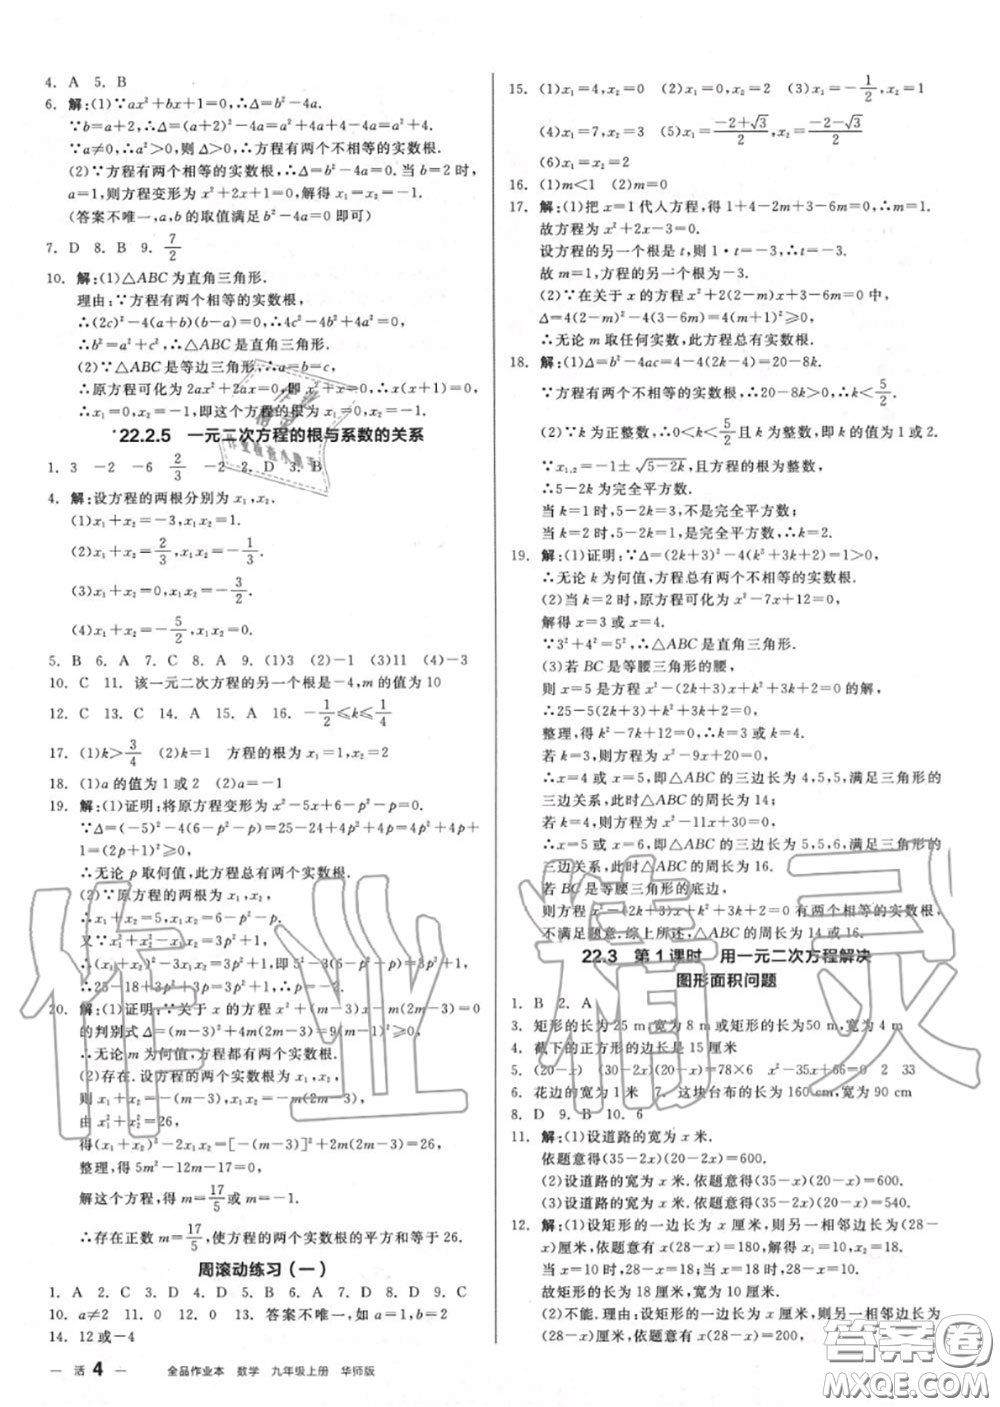 4. A　5. B
6. 解:(1)∵ax²+bx+1=0,∴Δ=b²-4a.
∵b=a+2,∴Δ=(a+2)²-4a=a²+4a+4-4a=a²+4.
∵a≠0,∴a²>0,则Δ>0,∴方程有两个不相等的实数根.
(2)∵方程有两个相等的实数根,∴Δ=b²-4a=0.当b=2时,
a=1,则方程变形为x²+2x+1=0,解得x₁=x₂=-1.
(答案不唯一,a,b的取值满足b²-4a=0即可)
7. D　8. B　9. 7/2
10. 解:(1)△ABC为直角三角形.
理由:∵方程有两个相等的实数根,
∴(2c)²-4(a+b)(a-b)=0,∴4c²-4a²+4b²=0,
∴b²=a²+c²,∴△ABC是直角三角形.
(2)∵△ABC是等边三角形,∴a=b=c,
∴原方程可化为2ax²+2ax=0,即x²+x=0,∴x(x+1)=0,
∴x₁=0,x₂=-1,即这个方程的根为x₁=0,x₂=-1.
*22.2.5　一元二次方程的根与系数的关系
1. 3　-2　-6　2/3　-2　2. D　3. B
4. 解:设方程的两根分别为x₁,x₂.
(1)x₁+x₂=-3,x₁x₂=1.
(2)x₁+x₂=2/3,x₁x₂=-1/3.
(3)x₁+x₂=0,x₁x₂=-3/2.
(4)x₁+x₂=-5/2,x₁x₂=0.
5. B　6. A　7. C　8. A　9. (1)3　(2)-1　(3)11　(4)-3
10. C　11. 该一元二次方程的另一个根是-4,m的值为10
12. C　13. C　14. A　15. A　16. -1/2≤k≤1/4
17. (1)k>3/4　(2)k=1　方程的根为x₁=1,x₂=2
18. (1)a的值为1或2　(2)a=-1
19. 解:(1)证明:将原方程变形为x²-5x+6-p²-p=0.
∵Δ=(-5)²-4(6-p²-p)=25-24+4p²+4p=4p²+4p+1
=(2p+1)²≥0,
∴无论p取何值,此方程总有两个实数根.
(2)∵原方程的两根为x₁,x₂,
∴x₁+x₂=5,x₁x₂=6-p²-p.
又∵x₁²+x₂²-x₁x₂=3p²+1,
∴(x₁+x₂)²-3x₁x₂=3p²+1,
∴25-18+3p²+3p=3p²+1,∴p=-2.
20. 解:(1)证明:∵关于x的方程x²+(m-3)x-m(2m-3)=0
的判别式Δ=(m-3)²+4m(2m-3)=9(m-1)²≥0,
∴无论m为何值,方程都有两个实数根.
(2)存在.设方程的两个实数根为x₁,x₂,
则x₁+x₂=-(m-3),x₁x₂=-m(2m-3).
由x₁²+x₂²=26,
得(x₁+x₂)²-2x₁x₂=[-(m-3)]²+2m(2m-3)=26,
整理,得5m²-12m-17=0,
解这个方程,得m=17/5或m=-1.
∴存在正数m=17/5,使方程的两个实数根的平方和等于26.
周滚动练习(一)
1. A　2. D　3. B　4. C　5. A　6. D　7. D　8. D　9. C
10. a≠2　11. 0　12. 0　13. 答案不唯一,如a=1,b=2
14. 12或-4
15. (1)x₁=4,x₂=0　(2)x₁=0,x₂=2　(3)x₁=x₂=-1/2
(4)x₁=7,x₂=3　(5)x₁=(-2+√3)/2,x₂=(-2-√3)/2
(6)x₁=x₂=2
16. (1)m<1　(2)m=0
17. 解:(1)把x=1代入方程,得1+4-2m+3-6m=0,∴m=1.
故方程为x²+2x-3=0.
设方程的另一个根是t,则1·t=-3,∴t=-3.
故m=1,方程的另一个根为-3.
(2)∵在关于x的方程x²+2(2-m)x+3-6m=0中,
Δ=4(2-m)²-4(3-6m)=4(m+1)²≥0,
∴无论m取任何实数,此方程总有实数根.
18. 解:(1)Δ=b²-4ac=4-4(2k-4)=20-8k.
∵方程有两个不相等的实数根,∴20-8k>0,∴k<5/2.
(2)∵k为正整数,∴0<k<5/2(且k为整数),即k的值为1或2.
∵x₁,₂=-1±√(5-2k),且方程的根为整数,
∴5-2k为完全平方数.
当k=1时,5-2k=3,不是完全平方数;
当k=2时,5-2k=1,是完全平方数,∴k=2.
19. 解:(1)证明:∵Δ=(2k+3)²-4(k²+3k+2)=1>0,
∴无论k为何值,方程总有两个不相等的实数根.
(2)当k=2时,原方程可化为x²-7x+12=0,
解得x=3或x=4.
∵3²+4²=5²,∴△ABC是直角三角形.
(3)若BC是等腰三角形的腰,
则x=5是方程x²-(2k+3)x+k²+3k+2=0的解,
∴25-5(2k+3)+k²+3k+2=0,
整理,得k²-7k+12=0,∴k=3或k=4.
若k=3,则方程为x²-9x+20=0,
∴x=4或x=5,即△ABC的三边长为4,5,5,满足三角形的
三边关系,此时△ABC的周长为14;
若k=4,则方程为x²-11x+30=0,
∴x=5或x=6,即△ABC的三边长为5,5,6,满足三角形的
三边关系,此时△ABC的周长为16.
若BC是等腰三角形的底边,
则方程x²-(2k+3)x+k²+3k+2=0有两个相等的实数根,
不满足题意.综上所述,△ABC的周长为14或16.
22.3　第1课时　用一元二次方程解决
图形面积问题
1. B　2. A
3. 矩形的长为25 m,宽为8 m或矩形的长为50 m,宽为4 m
4. 截下的正方形的边长是15厘米
5. (20-x)　(30-2x)(20-x)=78×6　x²-35x+66=0　2　33
6. 花边的宽为1米　7. 这块台布的长为160 cm,宽为90 cm
8. D　9. B　10. 6
11. 解:(1)设道路的宽为x米.
依题意得(35-2x)(20-2x)=600.
(2)设道路的宽为x米.依题意得(35-x)(20-x)=600.
(3)设道路的宽为x米.依题意得(35-2x)(20-x)=540.
12. 解:(1)设矩形的一边长为x厘米,则另一相邻边长为(28-
x)厘米.依题意有x(28-x)=180,解得x₁=10,x₂=18.
当x=10时,28-x=18;当x=18时,28-x=10.
故矩形的长为18厘米,宽为10厘米.
(2)不能.理由:设矩形的一边长为x厘米,则另一相邻边长
为(28-x)厘米.依题意有x(28-x)=200,即x²-28x+
— 活 4 —　全品作业本　数学　九年级上册　华师版
作业精灵
答案圈
MXQE.COM